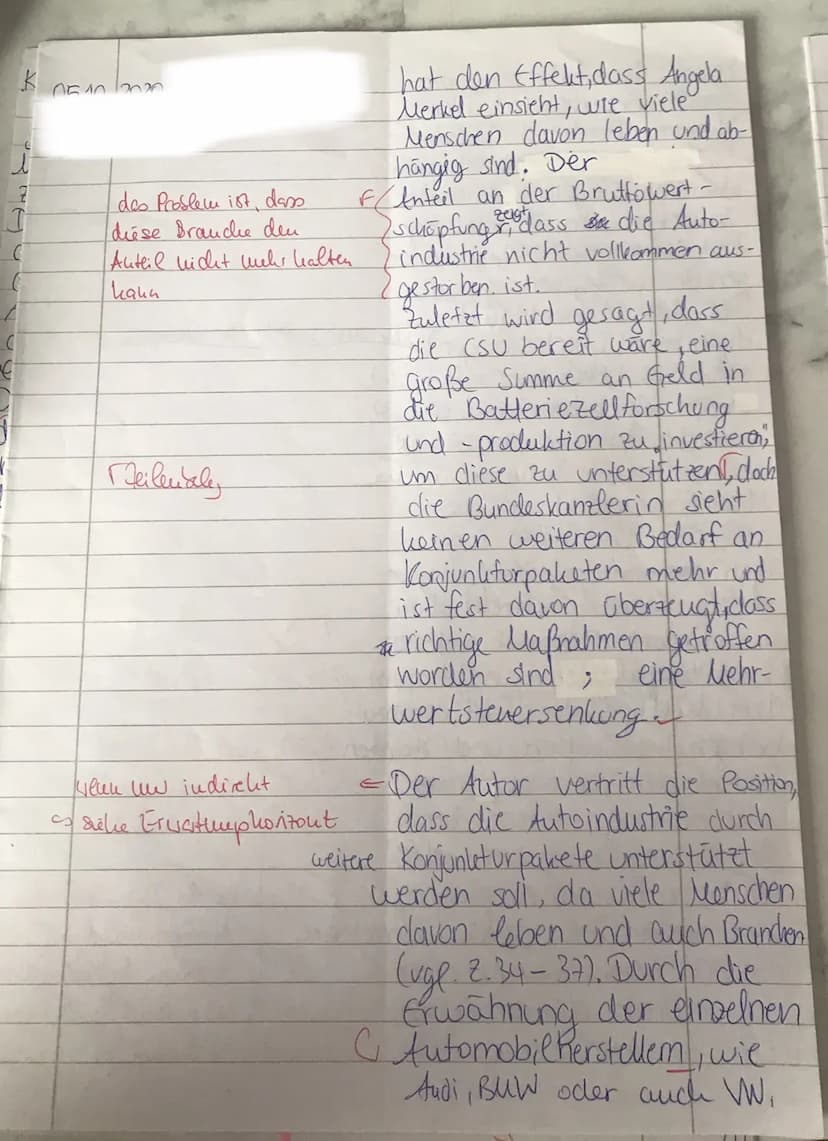 05.10.2020
hat den Effekt, dass Angela
Merkel einsieht, wie viele
Menschen davon leben und ab-
hängig sind. Der
Anteil an der Bruttowert-
schöpfung zeigt, dass die Auto-
industrie nicht vollkommen aus-
gestorben ist.
das Problem ist, dass
diese Branche den
Anteil nicht mehr halten
kann
F
Zuletzt wird gesagt, dass
die CSU bereit wäre, eine
große Summe an Geld in
die Batteriezellforschung
und -produktion zu investieren,
um diese zu unterstützen, doch
die Bundeskanzlerin sieht
keinen weiteren Bedarf an
Konjunkturpaketen mehr und
ist fest davon überzeugt, dass
richtige Maßnahmen getroffen
worden sind ; eine Mehr-
wertsteuersenkung.
wenn nur indirekt
siehe Erwartungshorizont
Der Autor vertritt die Position,
dass die Autoindustrie durch
weitere Konjunkturpakete unterstützt
werden soll, da viele Menschen
davon leben und auch Branchen
(vgl. Z.34-37). Durch die
Erwähnung der einzelnen
Automobilherstellern, wie
Audi, BMW oder auch VW,